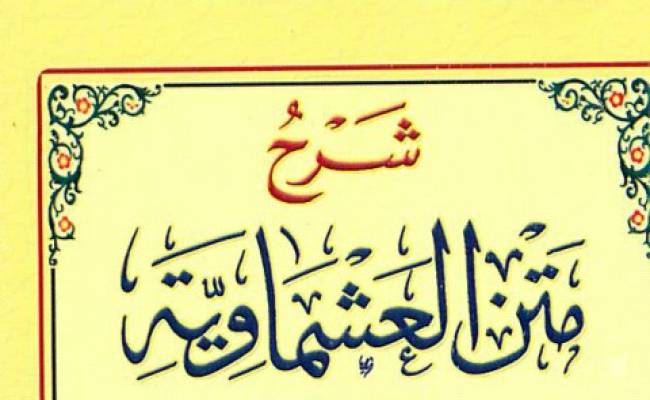 شَرْحُ
مَتْنِ الْعَشْمَاوِيَّةِ